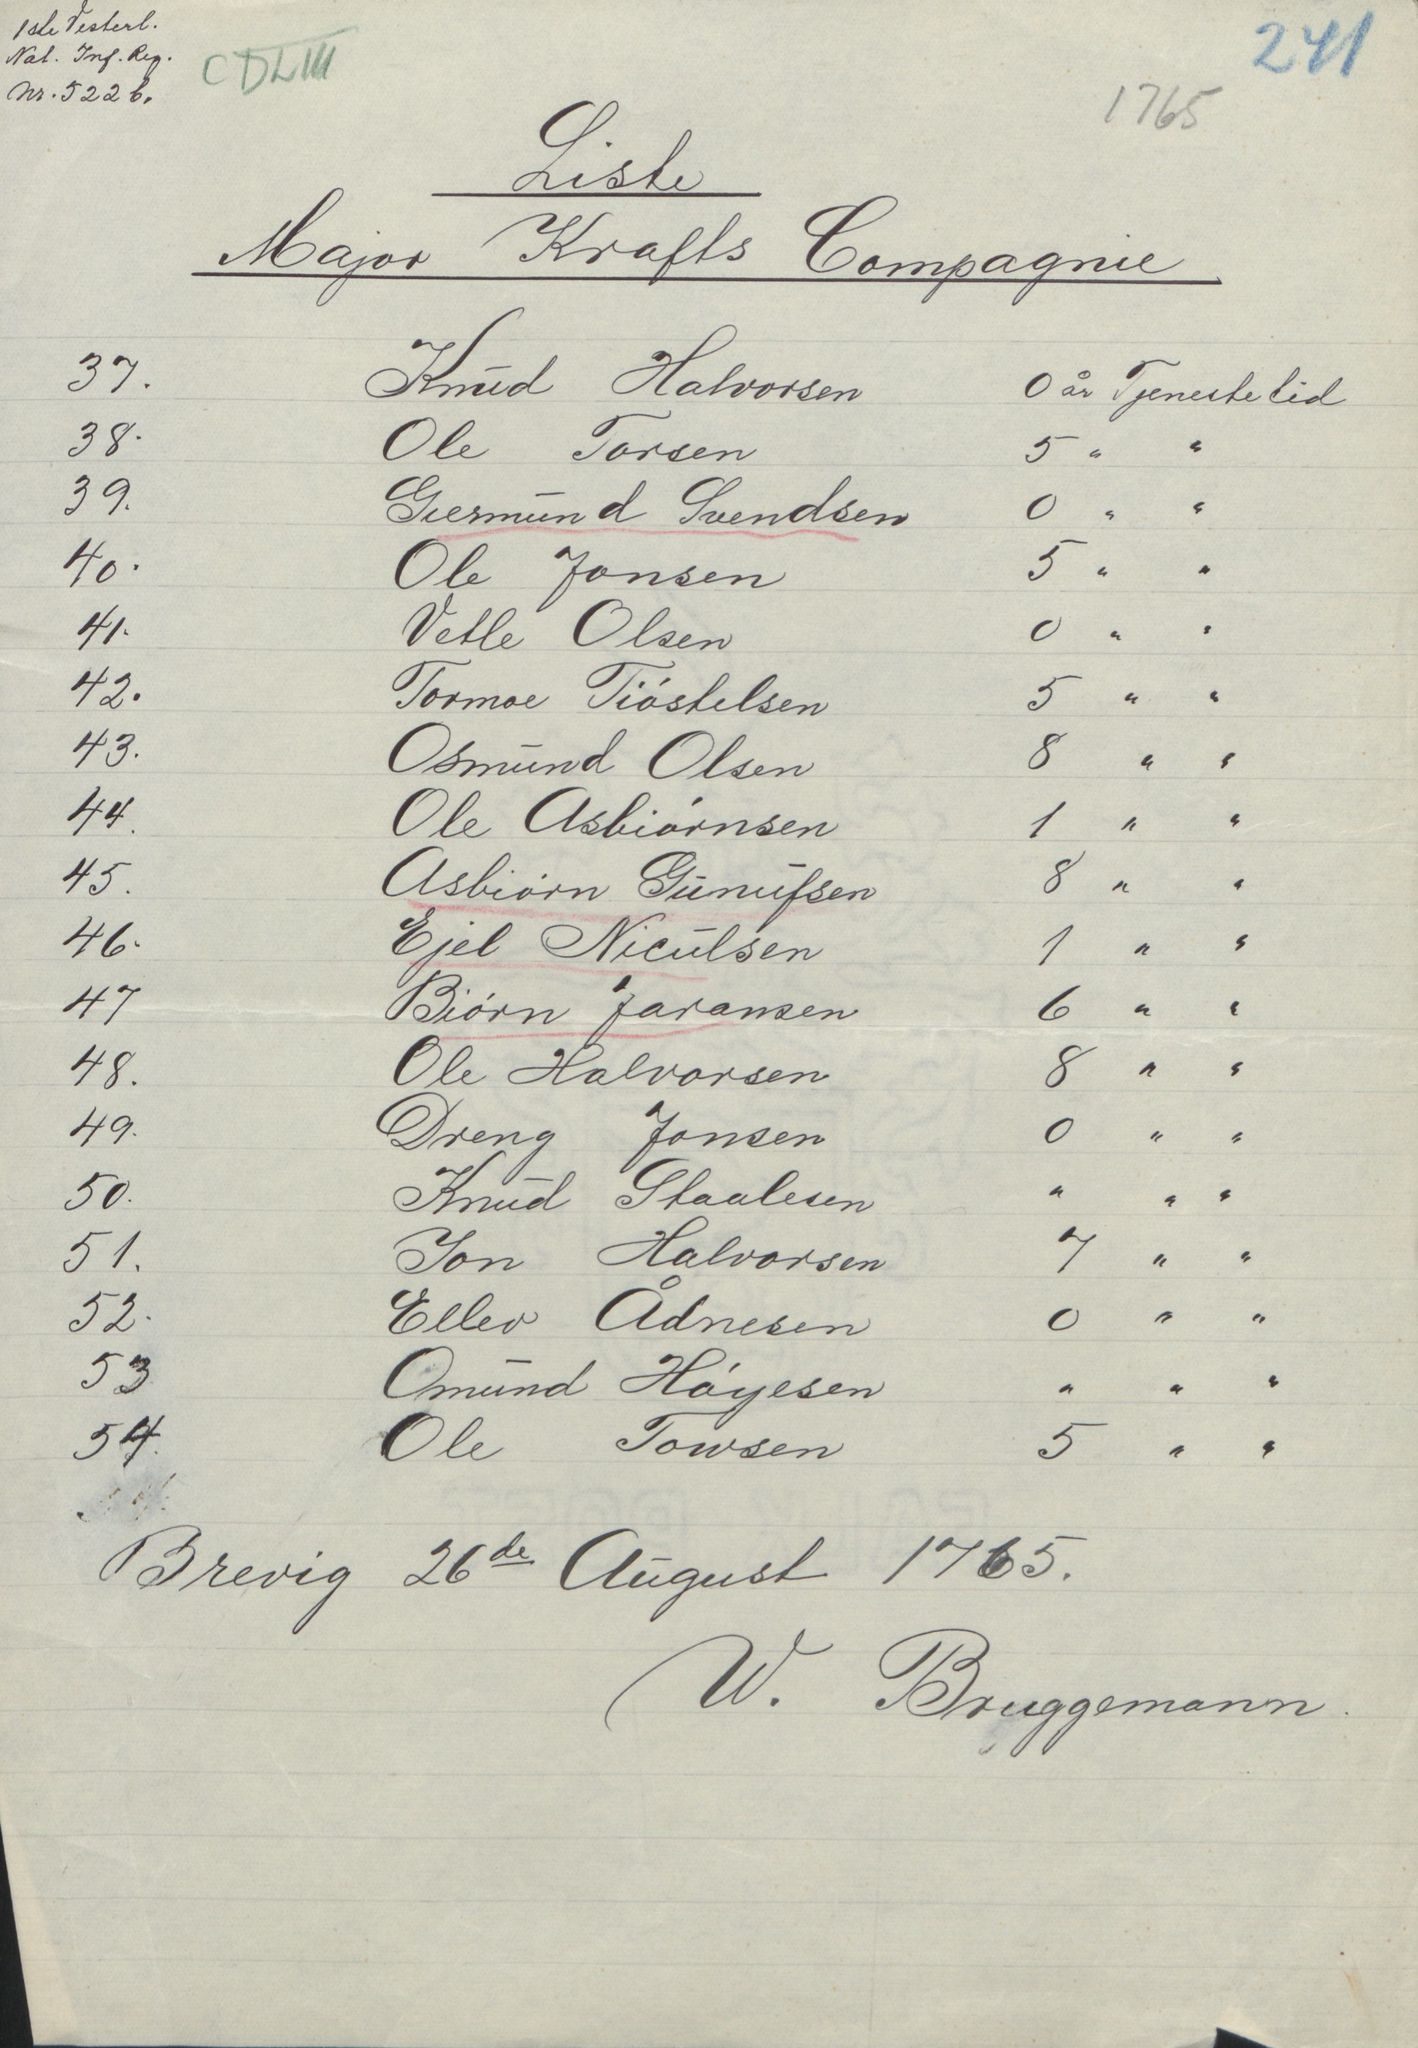 1ste Vesterl.
Nat. Inf. Reg.
Nr. 522 b.
CDLIII
241
1765
Liste
Major Krafts Compagnie
37. Knud Halvorsen 0 år Tjenestetid
38. Ole Torsen 5 " "
39. Giermund Svendsen 0 " "
40. Ole Jonsen 5 " "
41. Vetle Olsen 0 " "
42. Tormoe Tióstelsen 5 " "
43. Osmund Olsen 8 " "
44. Ole Asbiórnsen 1 " "
45. Asbiórn Gunufsen 8 " "
46. Ejel Niculsen 1 " "
47 Biórn Jaransen 6 " "
48. Ole Halvorsen 8 " "
49. Dreng Jonsen 0 " "
50. Knud Staalesen " " "
51. Jon Halvorsen 7 " "
52. Ellev Ådnesen 0 " "
53 Omund Hóyesen " " "
54. Ole Towsen 5 " "
Brevig 26de August 1765.
W. Bruggemann.